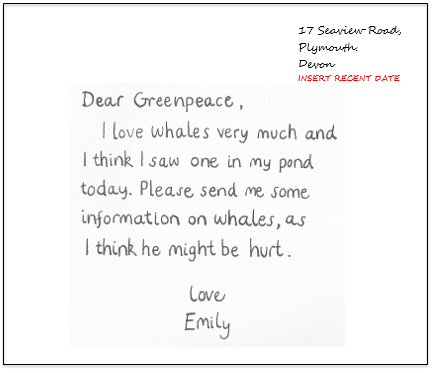 17 Seaview Road,
Plymouth.
Devon
INSERT RECENT DATE
Dear Greenpeace,
I love whales very much and
I think I saw one in my pond
today. Please send me some
information on whales, as
I think he might be hurt.
Love
Emily